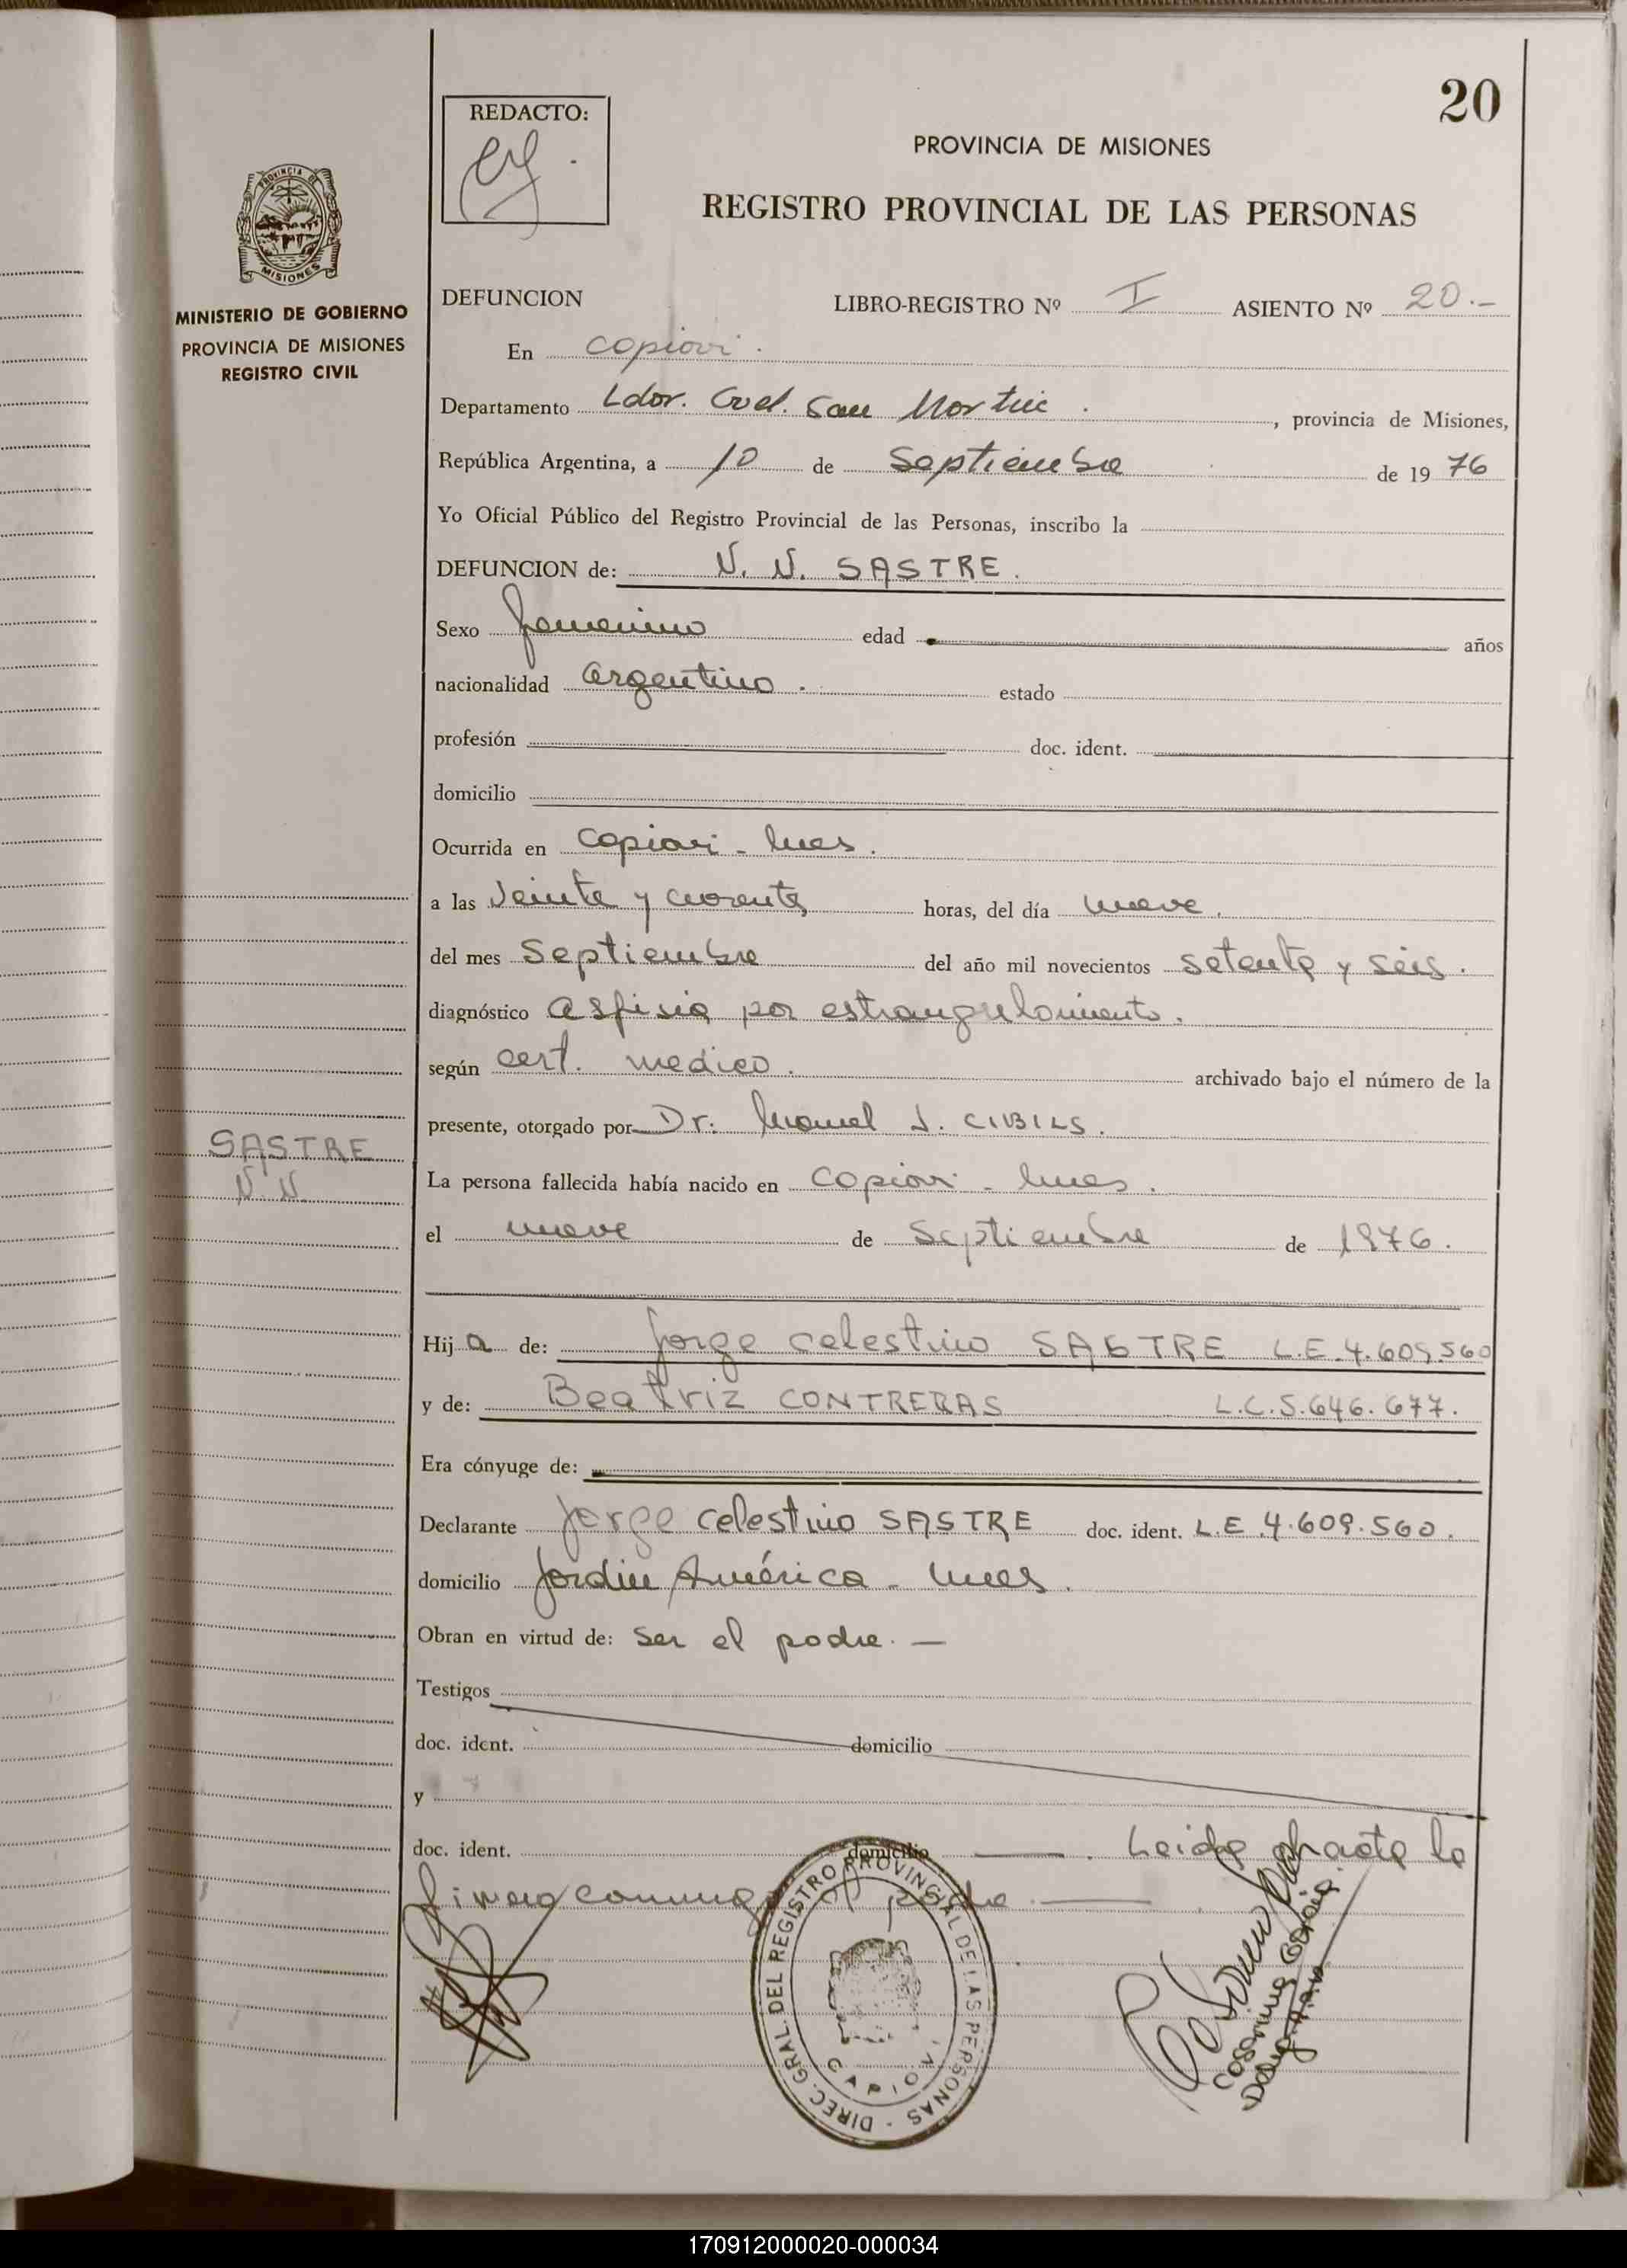 20
REDACTO:
PROVINCIA DE MISIONES
REGISTRO PROVINCIAL DE LAS PERSONAS
PROVINCIA DE
MISIONES
MINISTERIO DE GOBIERNO
PROVINCIA DE MISIONES
REGISTRO CIVIL
DEFUNCION LIBRO-REGISTRO Nº I ASIENTO Nº 20.-
En Capiovi.
Departamento Ldor. Gral. San Martin. , provincia de Misiones,
República Argentina, a 10 de Septiembre de 19 76
Yo Oficial Público del Registro Provincial de las Personas, inscribo la
DEFUNCION de: N. N. SASTRE.
Sexo femenino edad años
nacionalidad argentina. estado
profesión doc. ident.
domicilio
Ocurrida en Capiovi - Mnes.
a las veinte y cuarenta horas, del día nueve.
del mes Septiembre del año mil novecientos setenta y seis.
diagnóstico asfixia por estrangulamiento.
según cert. medico. archivado bajo el número de la
presente, otorgado por Dr. Manuel J. CIBILS.
SASTRE
N. N.
La persona fallecida había nacido en Capiovi - Mnes.
el nueve de Septiembre de 1976.
Hij a de: Jorge Celestino SASTRE L.E. 4.609.560
y de: Beatriz CONTRERAS L.C. 5.646.677.
Era cónyuge de:
Declarante Jorge Celestino SASTRE doc. ident. L.E. 4.609.560.
domicilio Jardin América - Mnes.
Obran en virtud de: ser el padre. —
Testigos
doc. ident. domicilio
y
doc. ident. domicilio — . Leida el acta la
firma conmigo el padre. —
DIREC. GRAL. DEL REGISTRO PROVINCIAL DE LAS PERSONAS -
CAPIOVI
170912000020-000034